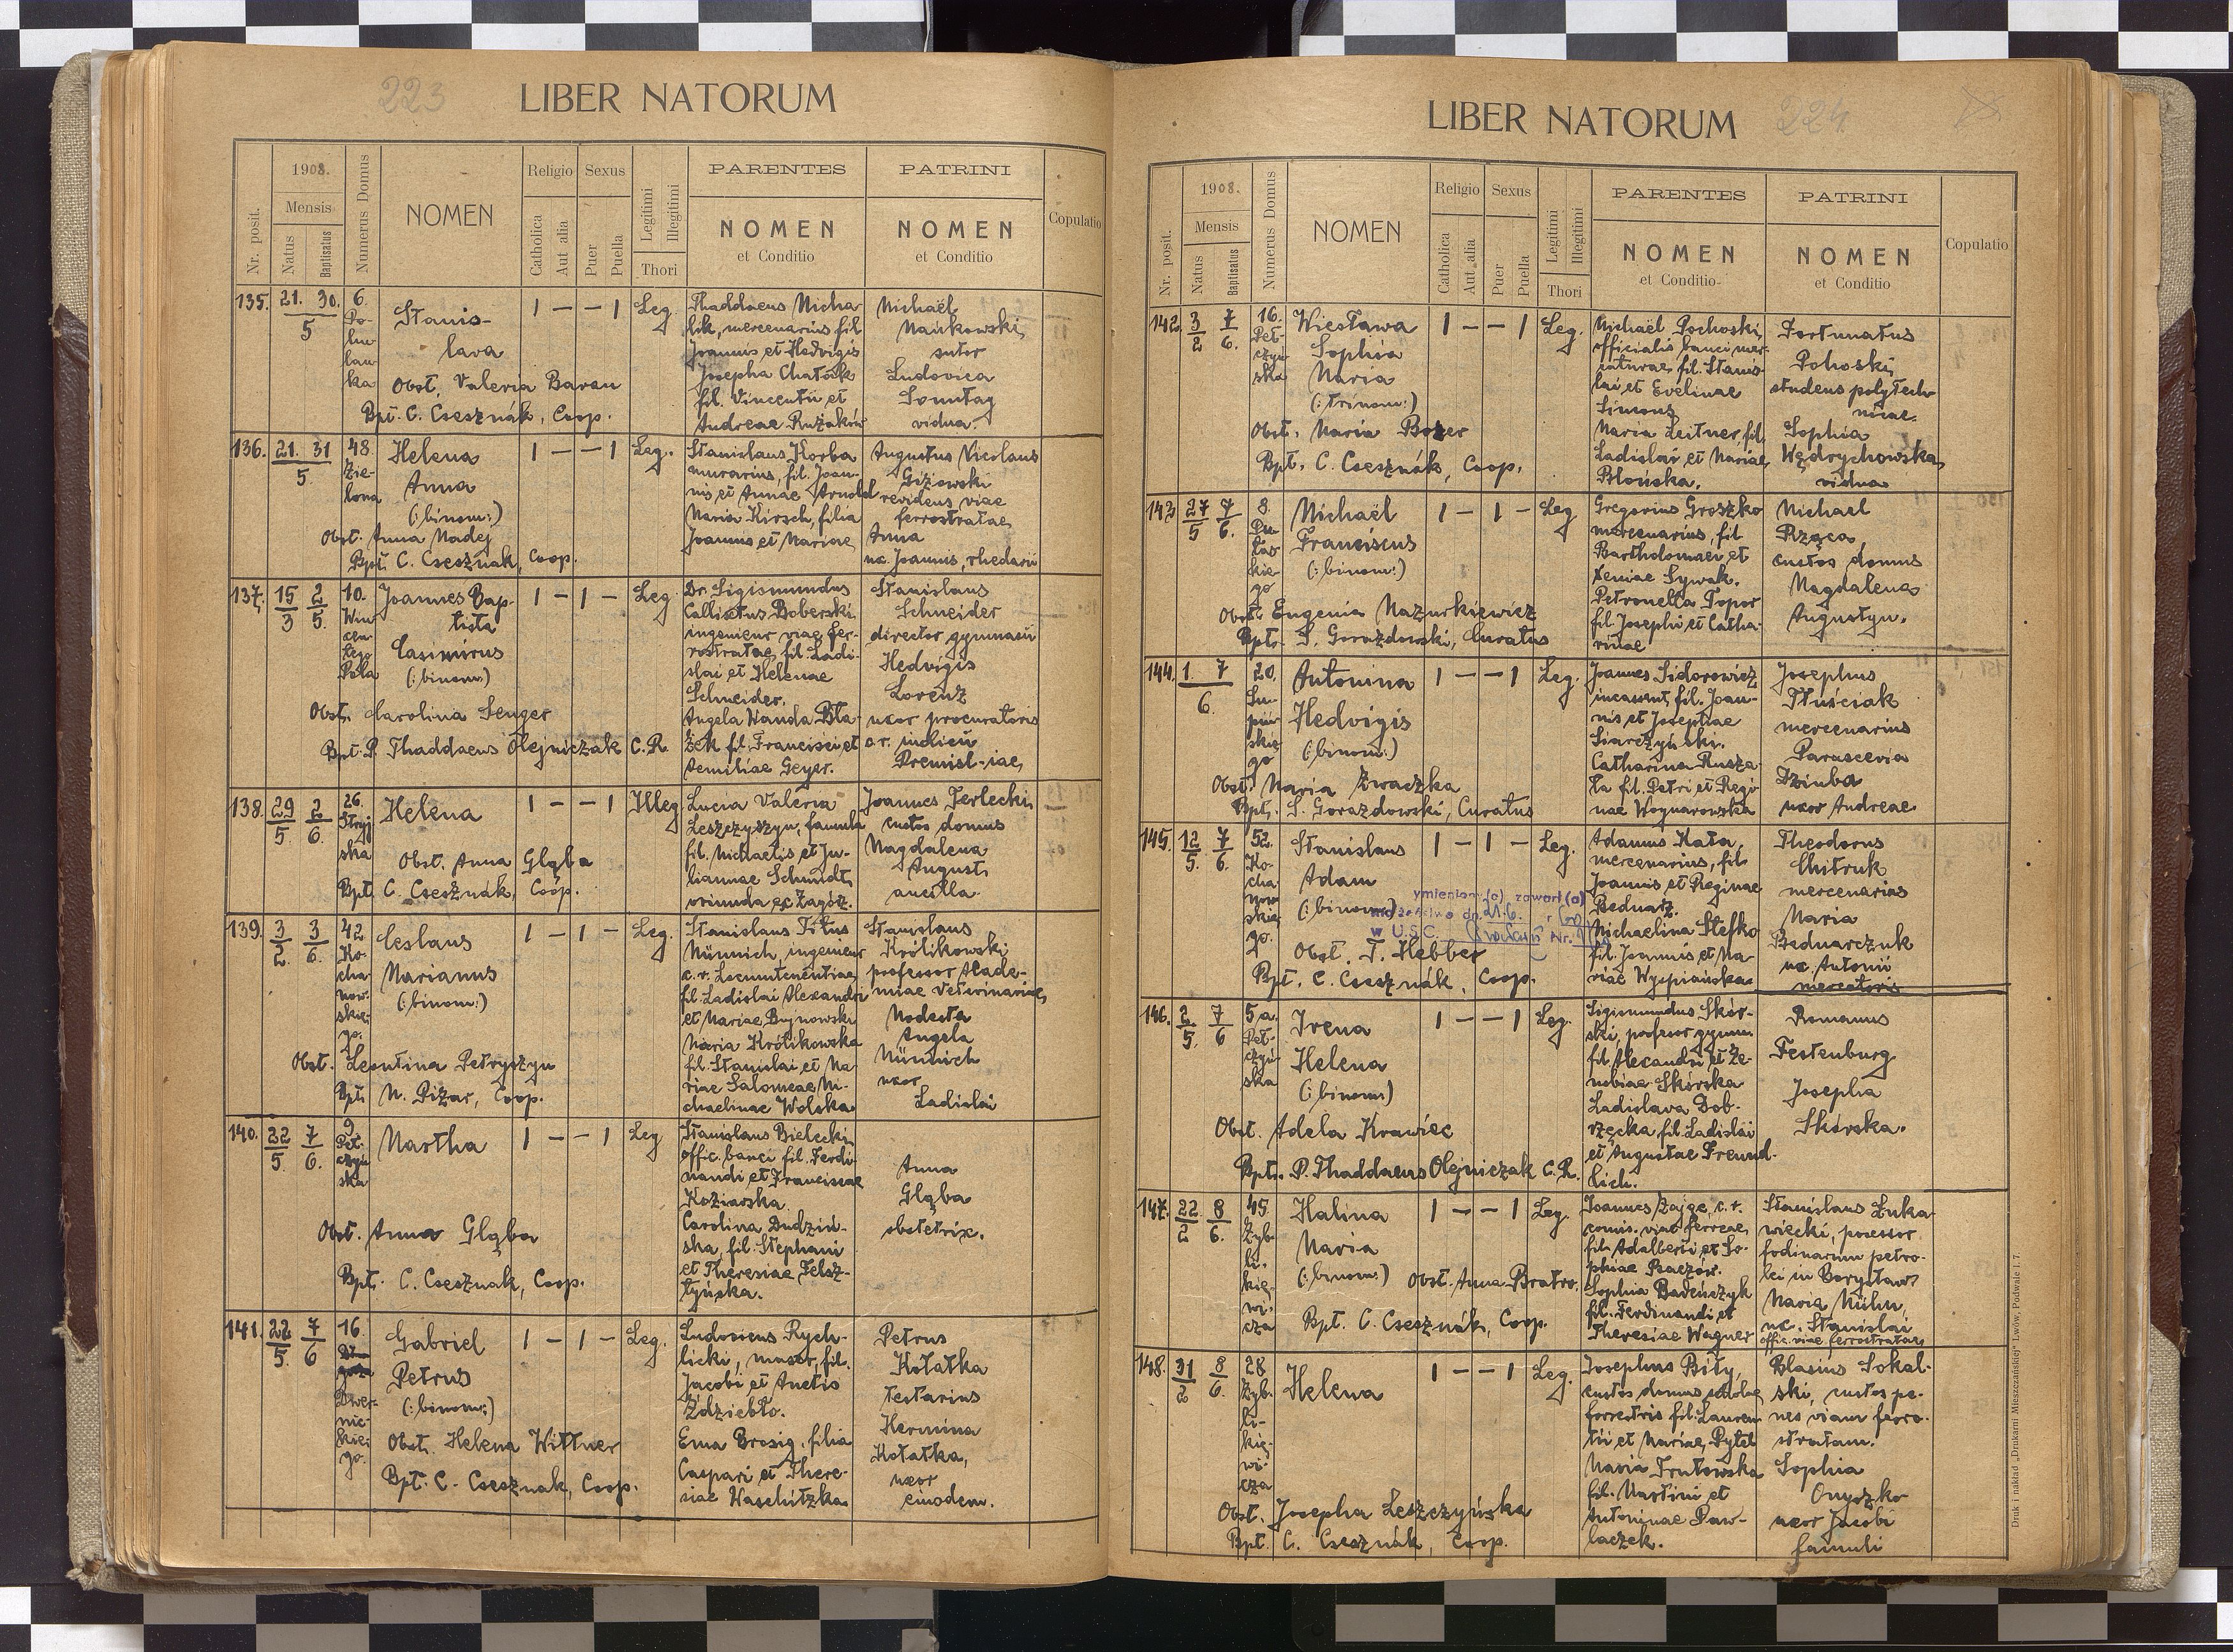 223
LIBER NATORUM
Nr. posit.
1908.
Mensis
Natus
Baptisatus
Numerus Domus
NOMEN
Religio
Catholica
Aut alia
Sexus
Puer
Puella
Legitimi
Illegitimi
Thori
PARENTES
NOMEN
et Conditio
PATRINI
NOMEN
et Conditio
Copulatio
135. 21. 30. 5
6.
Stanis-
lava
Obst. Valeria Baran
Bpt. C. Csesznák, Coop.
1 — — 1 Leg.
Thaddaeus Micha-
lik, mercenarius fil.
Joannis et Hedvigis
Josepha Chatoek
fil. Vincentii et
Andreae Rużaków
Michaël
Mańkowski,
sutor
Ludovica
Sonntag
vidua.
136. 21. 31 5
48.
Zie-
lona
Helena
Anna
(:binom:)
Obst. Anna Madej
Bpt. C. Csesznak, Coop.
1 — — 1 Leg.
Stanislaus Korba
murarius, fil. Joan-
nis et Annae Arnold
Maria Kirsch, filia
Joannis et Mariae
Augustus Nicolaus
Giżowski
revidens viae
ferrostratae,
Anna
ux. Joannis, rhedarii
137. 15/3 2/5.
10.
Win
cen
tego
Pola
Joannes Bap-
tista
Casimirus
(:binom:)
Obst. Carolina Senger
Bpt. P. Thaddaeus Olejniczak C.R.
1 — 1 — Leg.
Dr. Sigismundus
Callistus Boberski
ingenieur viae fer-
rostratae, fil. Ladi-
slai et Helenae
Schneider.
Angela Wanda Bła-
żek fil. Francisci et
Aemiliae Geyer.
Stanislaus
Schneider
director gymnasii
Hedvigis
Lorenz
uxor procuratoris
c.r. indicii
Premisl-iae,
138. 29/5 2/6.
26.
Stryj
ska
Helena
Obst. Anna Gląba
Bpt. C. Csesznák, Coop.
1 — — 1 Illeg.
Lucia Valeria
Leszczyszyn, famula
fil. Michaelis et Ju-
liannae Schmidt,
oriunda ex Zagórz.
Joannes Terlecki,
custos domus
Magdalena
August,
ancilla.
139. 3/2. 3/6.
42
Ko-
cha
now-
skie-
go.
Ceslaus
Marianus
(:binom:)
Obst. Leontina Petryszyn
Bpt. M. Piżar, Coop.
1 — 1 — Leg.
Stanislaus Titus
Münnich, ingenieur
c.r. Locumtenentiae,
fil. Ladislai Alexandri
et Mariae Bujnowski
Maria Królikowska
fil. Stanislai et Ma
riae Salomeae Mi-
chaelinae Wolska.
Stanislaus
Królikowski
professor Acade-
miae Veterinariae,
Modesta
Angela
Münnich
uxor
Ladislai
140. 22/5. 7/6.
9.
Peł-
czyń
ska
Martha
Obst. Anna Gląba
Bpt. C. Csesznak, Coop.
1 — — 1 Leg
Stanislaus Bielecki,
offic. banci fil. Ferdi-
nandi et Franciscae
Koziarska.
Carolina Dudziń-
ska, fil. Stephani
et Theresiae Felsz-
tyńska.
Anna
Gląba
obstetrix.
141. 22/5. 7/6
16.
Dwer-
nic-
kie-
go.
Gabriel
Petrus
(:binom:)
Obst. Helena Wittner
Bpt. C. Csesznak, Coop.
1 — 1 — Leg.
Ludovicus Rych-
licki, fil.
Jacobi et
Ździebło.
Ema Brosig, filia
Caspari et There-
siae Waschitzka.
Petrus
Kołatka
testarius
Hermina
Kołatka,
uxor
eiusdem.
224
LIBER NATORUM
Nr. posit.
1908.
Mensis
Natus
Baptisatus
Numerus Domus
NOMEN
Religio
Catholica
Aut alia
Sexus
Puer
Puella
Legitimi
Illegitimi
Thori
PARENTES
NOMEN
et Conditio
PATRINI
NOMEN
et Conditio
Copulatio
142. 3/2 7/6.
16.
Peł-
czyń
ska
Wiesława
Sophia
Maria
(:trinom:)
Obst. Maria Bozer
Bpt. C. Csesznák, Coop.
1 — — 1 Leg.
Michaël Pochoski,
officialis banci mer-
caturae, fil. Stanis-
lai et Evelinae
Simons
Maria Leitner, fil.
Ladislai et Mariae
Błońska.
Fortunatus
Pohoski,
studens polytech-
nicae.
Sophia
Wędrychowska,
vidua
143 27/5 7/6.
8.
Michaël
Franciscus
(:binom:)
Obst. Eugenia Mazurkiewicz
Bpt. S. Gorazdowski, Curatus
1 — 1 — Leg
Gregorius Groszko
mercenarius, fil.
Bartholomaei et
Xeniae Sywak.
Petronella Topor
fil. Josephi et Catha-
rinae
Michael
Rząca,
custos domus
Magdalena
Augustyn.
144. 1. 7 6.
20.
Antonina
Hedvigis
(:binom:)
Obst. Maria Zwaczka
Bpt. S. Gorazdowski, Curatus
1 — — 1 Leg.
Joannes Sidorowicz
incassent, fil. Joan-
nis et Josephae
Siarczyński.
Catharina Rusza-
ła fil. Petri et Regi-
nae Woynarowska
Josephus
Tłuściak
mercenarius
Parascevia
Dziuba
uxor Andreae
145. 12/5. 7/6.
52.
Ko-
cha
now
skie
go.
Stanislaus
Adam
(:binom:)
Obst. T. Hebber
Bpt. C. Csesznák, Coop.
1 — 1 — Leg.
ymieniony(a) zawarł(a)
małżeństwo dn. 21.6.
w U.S.C. Nr.
Adamus Kata,
mercenarius, fil.
Joannis et Reginae
Bednarz.
Michaelina Stefko
fil. Joannis et Ma-
riae Wyspiańska
Theodorus
Chitruk
mercenarius
Maria
Bednarczuk
ux. Antonii
mercatoris
146. 2/5. 7/6
5a.
Peł-
czyń
ska
Irena
Helena
(:binom:)
Obst. Adela Krawiec
Bpt. P. Thaddaeus Olejniczak C.R.
1 — — 1 Leg.
Sigismundus Skór-
ski, profesor gymn.
fil. Alexandri et Ze-
nobiae Skórska
Ladislava Dob-
rzęcka fil. Ladislai
et Augustae Freund-
lich.
Romanus
Festenburg
Josepha
Skórska.
147. 22/2 8/6.
45.
Zyb-
li-
kie-
wi-
cza
Halina
Maria
(:binom:) Obst. Anna Bratro.
Bpt. C. Csesznák, Coop.
1 — — 1 Leg.
Joannes Zając, c.r.
comis. viae ferreae,
fil. Adalberti et So-
phiae Raczów.
Sophia Badeńczyk
fil. Ferdinandi et
Theresiae Wagner
Stanislaus Łuka-
wiecki, possessor
fodinarum petro-
lei in Borysław
Maria Mühn,
ux. Stanislai
offic. viae ferrostratae,
148. 31/2 8/6.
28
Zyb-
li-
kie-
wi-
cza
Helena
Obst. Josepha Leszczyńska
Bpt. C. Csesznák, Coop.
1 — — 1 Leg.
Josephus Biły,
custos domus scholae
forrestris fil. Lauren-
tii et Mariae Pytel
Maria Trutowska
fil. Martini et
Antoninae Paw-
laczek.
Blasius Sokal-
ski, custos pe-
nes viam ferro-
stratam.
Sophia
Onyszko
uxor Jacobi
famuli
Druk i nakład „Drukarni Mieszczańskiej" Lwów, Podwale l. 7.